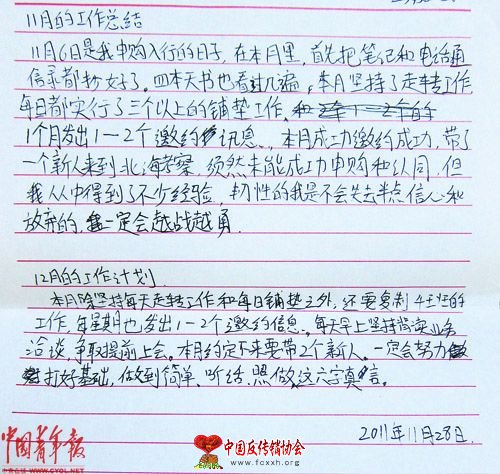 11月的工作总结
11月6日是我申购入行的日子,在本月里,首先把笔记和电话通
信录都抄好了。四本天书也看过几遍,本月坚持了走转工作,
每日都实行了三个以上的铺垫工作。
1个月发出1一2个邀约讯息、本月成功邀约成功,带了
一个新人来到北海考察,须然未能成功申购和认同,但
我从中得到了不少经验,韧性的我是不会失去半点信心和
放弃的,我一定会越战越勇.
12月的工作计划
本月除坚持每天走转工作和每日铺垫之外,还要复制4主性的
工作,每星期也发出1一2个邀约信息、每天早上坚持业务
洽谈,争取提前上会。本月约定下来要带2个新人。一定会努力做
打好基础,做到简单、听话、照做,这六字真言。
2011年11月28日.
中国青年报
中青在线 WWW.CYOL.NET
中国反传销协会
www.fcxxh.org